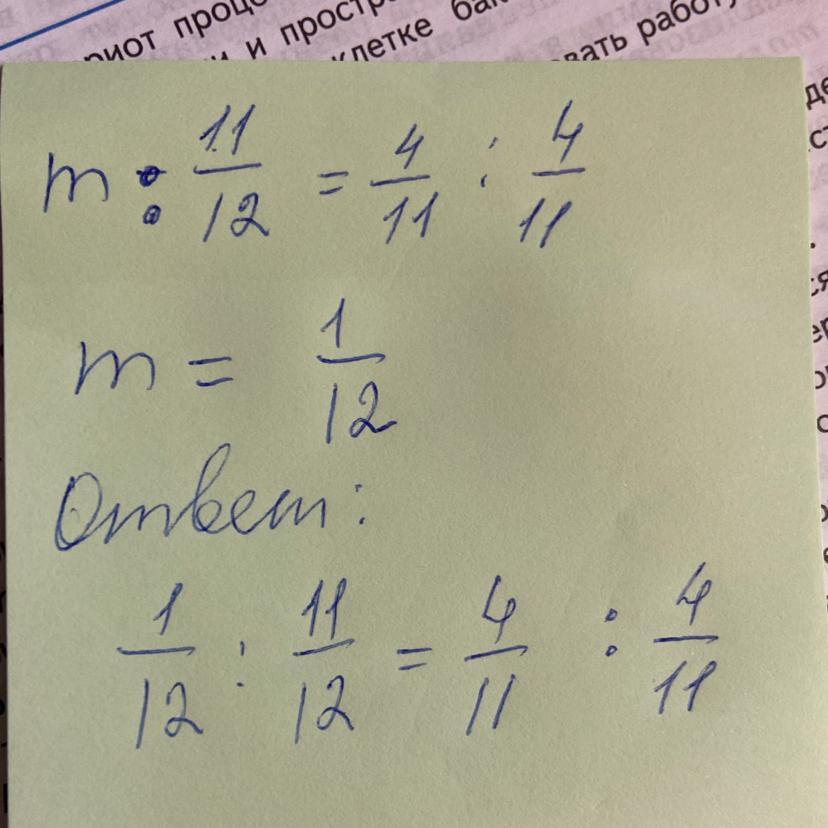 риот проце
и и простра
клетке бак
вать работу
m : 11/12 = 4/11 : 4/11
m = 1/12
Ответ:
1/12 : 11/12 = 4/11 : 4/11